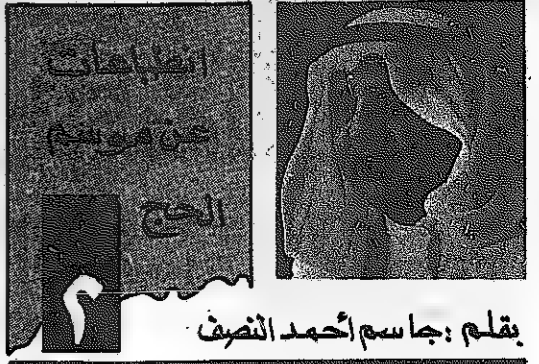 انطباعات
عن موسم
الحج
٢
بقلم : جاسم أحمد النصف